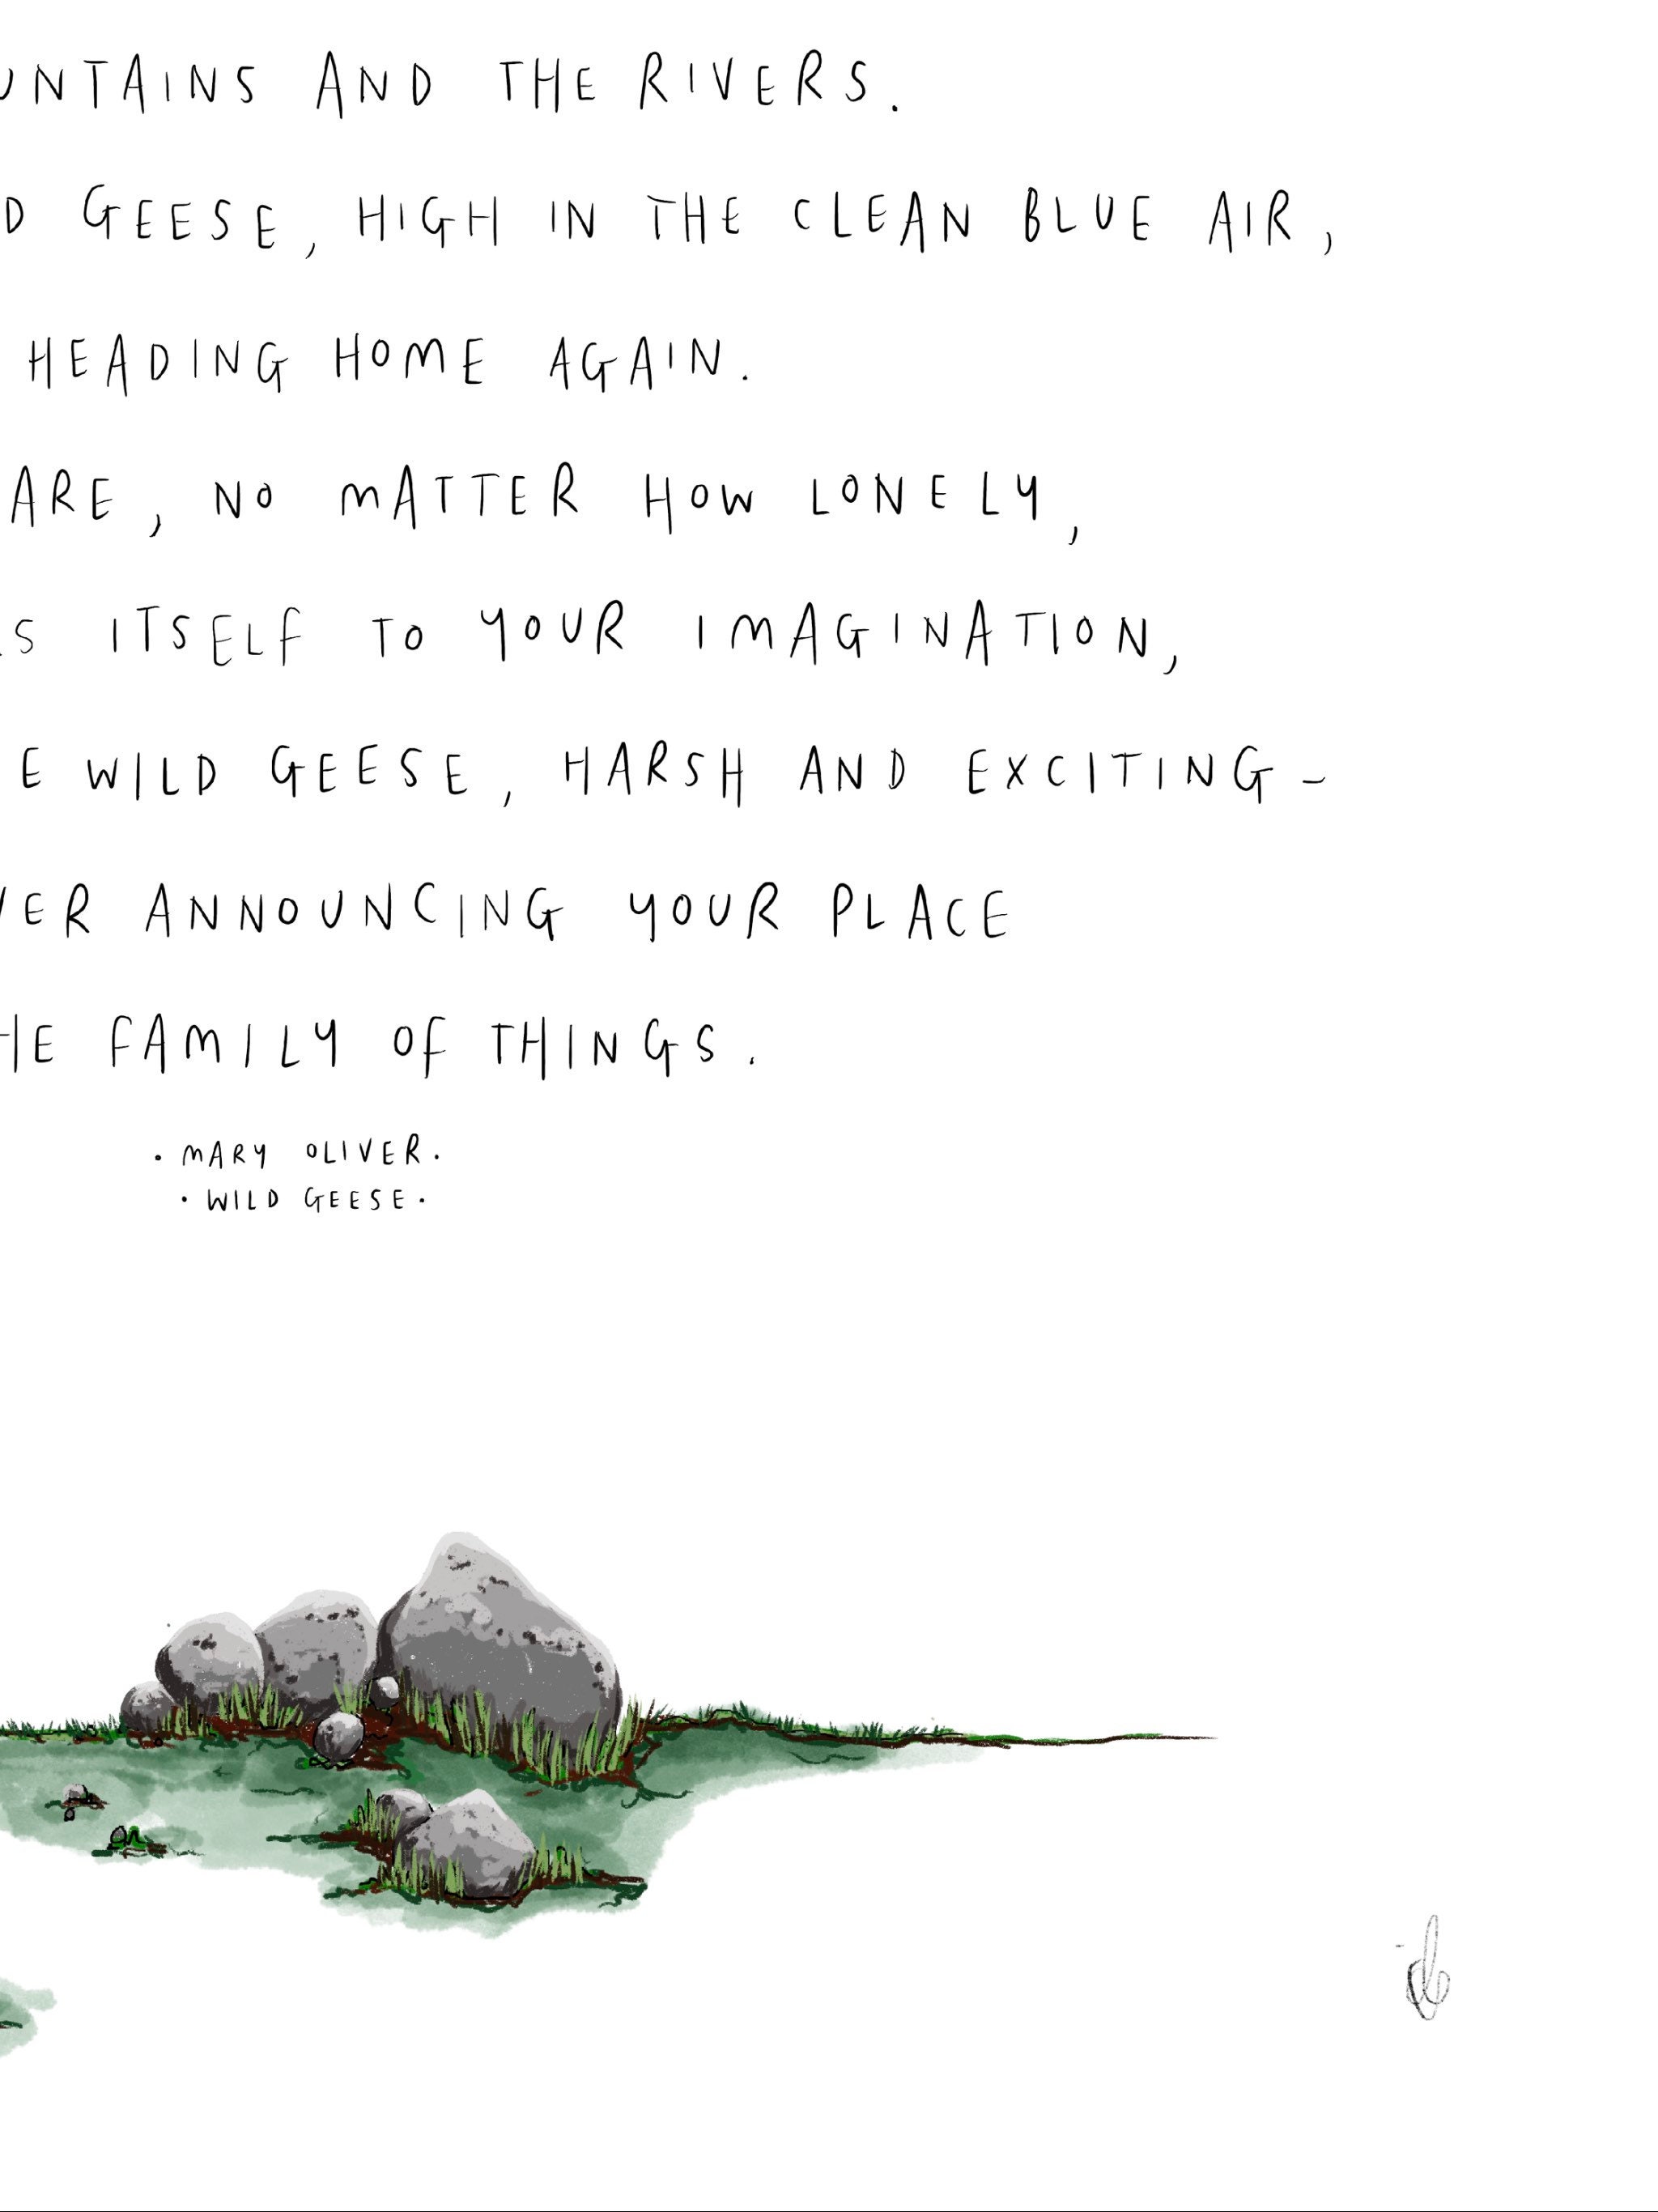 UNTAINS AND THE RIVERS.
D GEESE, HIGH IN THE CLEAN BLUE AIR,
HEADING HOME AGAIN.
ARE, NO MATTER HOW LONELY,
S ITSELF TO YOUR IMAGINATION,
E WILD GEESE, HARSH AND EXCITING-
ER ANNOUNCING YOUR PLACE
HE FAMILY OF THINGS.
• MARY OLIVER •
• WILD GEESE •